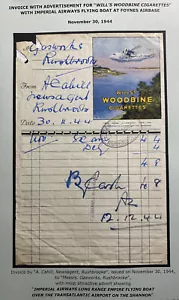 INVOICE WITH ADVERTISEMENT FOR "WILL'S WOODBINE CIGARETTES"
WITH IMPERIAL AIRWAYS FLYING BOAT AT FOYNES AIRBASE
November 30, 1944
M Gasworks
Rushbrooke
From A Cahill
Newsagent
Rushbrooke
Date 30.11.44
WILLS'S
WOODBINE
CIGARETTES
100
4
4
8
Cash
12.12.44
Invoiced by "A. Cahill, Newsagent, Rushbrooke", issued on November 30, 1944,
to "Messrs. Gasworks, Rushbrooke",
with most attractive advert showing
"IMPERIAL AIRWAYS LONG RANGE EMPIRE FLYING BOAT
OVER THE TRANSATLANTIC AIRPORT ON THE SHANNON"